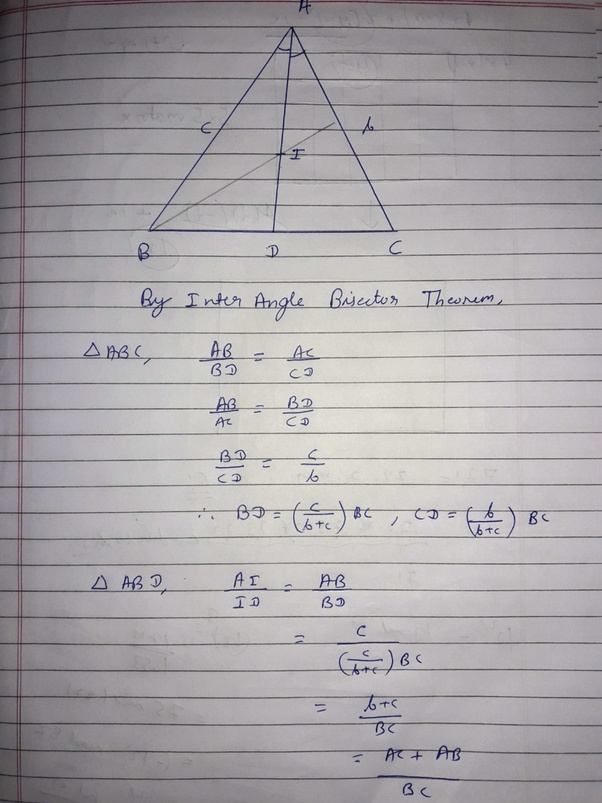 A
C b
I
B D C
By Inter Angle Bisector Theorem,
△ ABC, AB/BD = AC/CD
AB/AC = BD/CD
BD/CD = C/b
∴ BD = (c/b+c) BC , CD = (b/b+c) BC
△ ABD, AI/ID = AB/BD
= C/(c/b+c) BC
= b+c/BC
= AC + AB/BC